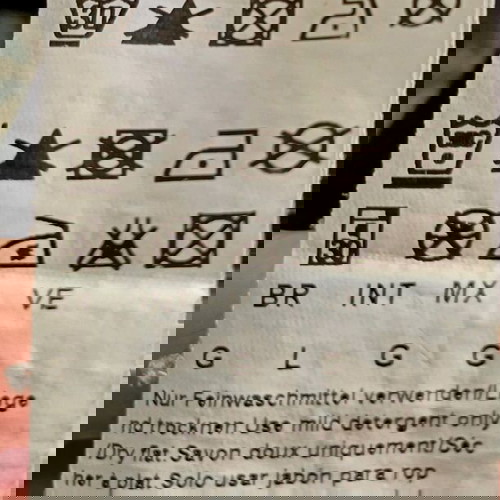 30
30
BR INT MX VE
G L G G
Nur Feinwaschmittel verwenden/Liege
nd trocknen Use mild detergent only
/Dry flat Savon doux uniquement/Séc
Solo usar jabón para rop